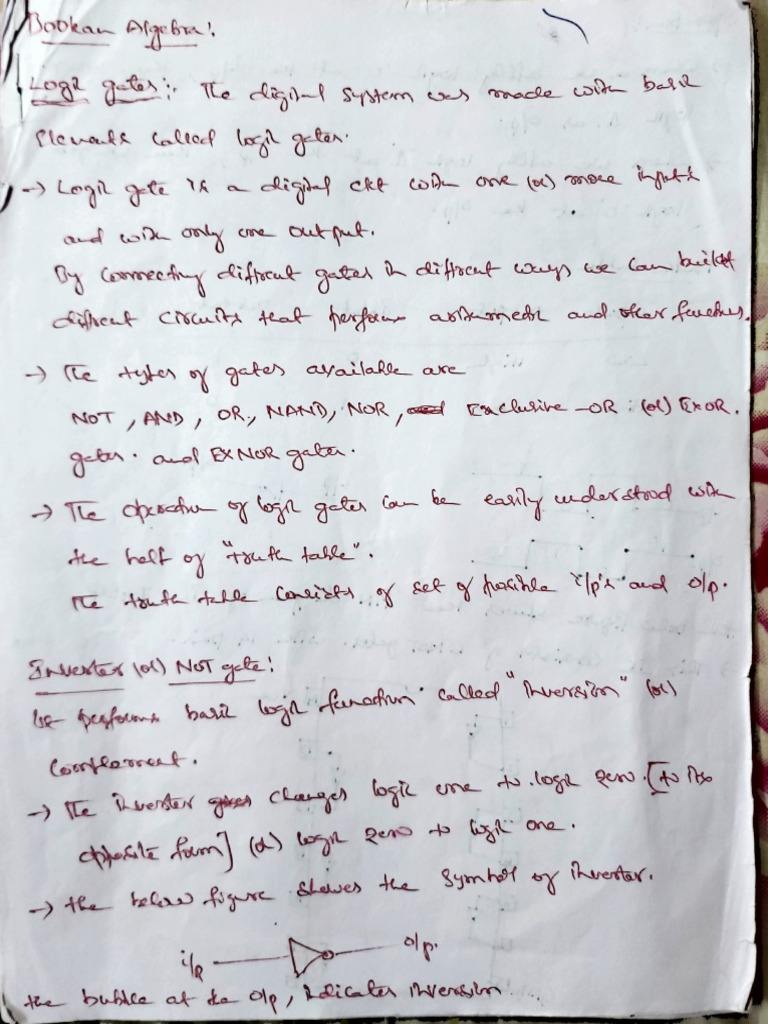 Boolean Algebra:
Logic gates:- The digital system was made with basic
elements called logic gates.
→ Logic gate is a digital ckt with one (or) more inputs
and with only one output.
By connecting different gates in different ways we can built
different circuits that performs arithmetic and other functions.
→ The types of gates available are
NOT, AND, OR, NAND, NOR, Exclusive-OR (or) EXOR.
gates. and EXNOR gates.
→ The operation of logic gates can be easily understood with
the help of "truth table".
The truth table consists of set of possible i/p's and o/p.
Inverter (or) NOT gate:
It performs basic logic function called "Inversion" (or)
Complement.
→ The inverter changes logic one to logic zero. [to its
opposite form] (or) logic zero to logic one.
→ the below figure shows the symbol of inverter.
i/p o/p.
the bubble at the o/p, indicates inversion